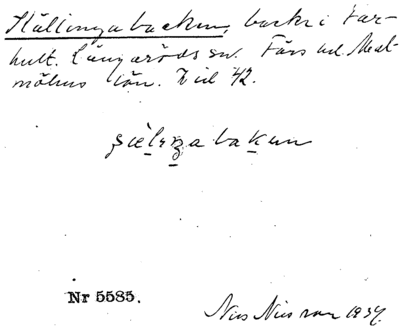 Hällingabacken, backe i Far-
hult. Långaröds sn. Färs hd. Mal-
möhus län. K id 42.
Nr 5585.
Nils Nilsson 1934.